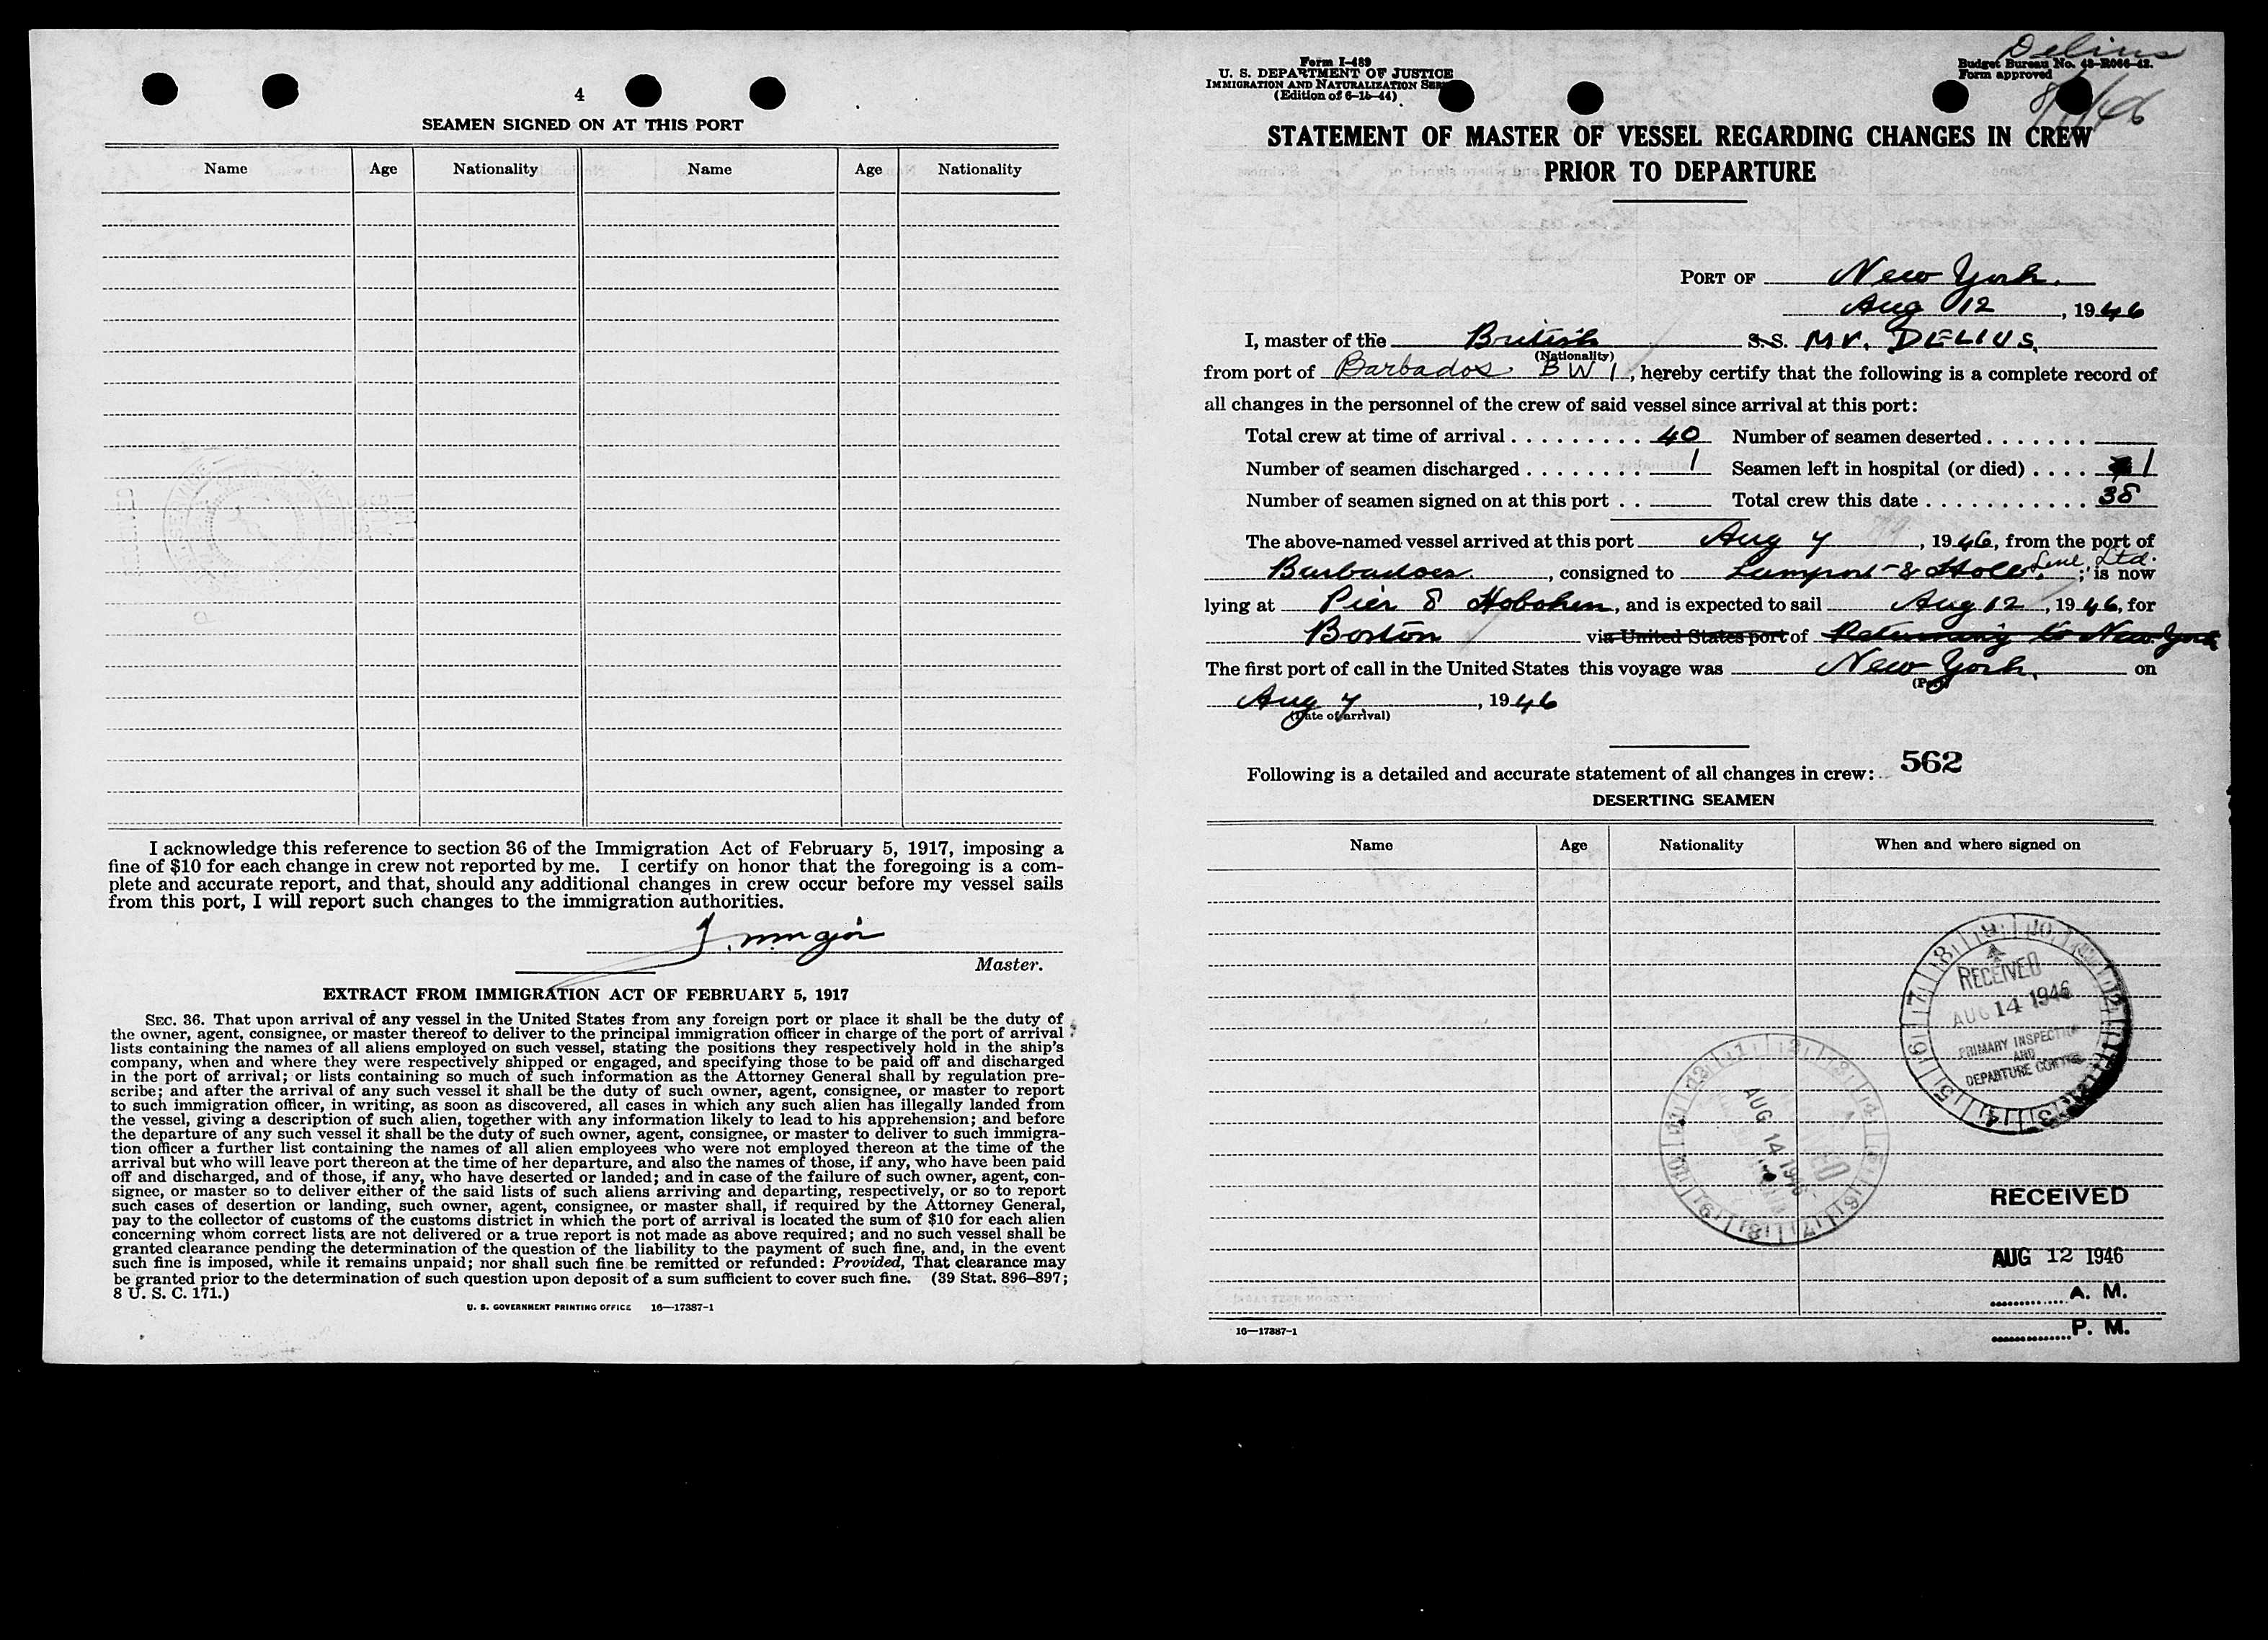 4
SEAMEN SIGNED ON AT THIS PORT
Name Age Nationality Name Age Nationality
I acknowledge this reference to section 36 of the Immigration Act of February 5, 1917, imposing a
fine of $10 for each change in crew not reported by me. I certify on honor that the foregoing is a com-
plete and accurate report, and that, should any additional changes in crew occur before my vessel sails
from this port, I will report such changes to the immigration authorities.
Master.
EXTRACT FROM IMMIGRATION ACT OF FEBRUARY 5, 1917
SEC. 36. That upon arrival of any vessel in the United States from any foreign port or place it shall be the duty of
the owner, agent, consignee, or master thereof to deliver to the principal immigration officer in charge of the port of arrival
lists containing the names of all aliens employed on such vessel, stating the positions they respectively hold in the ship's
company, when and where they were respectively shipped or engaged, and specifying those to be paid off and discharged
in the port of arrival; or lists containing so much of such information as the Attorney General shall by regulation pre-
scribe; and after the arrival of any such vessel it shall be the duty of such owner, agent, consignee, or master to report
to such immigration officer, in writing, as soon as discovered, all cases in which any such alien has illegally landed from
the vessel, giving a description of such alien, together with any information likely to lead to his apprehension; and before
the departure of any such vessel it shall be the duty of such owner, agent, consignee, or master to deliver to such immigra-
tion officer a further list containing the names of all alien employees who were not employed thereon at the time of the
arrival but who will leave port thereon at the time of her departure, and also the names of those, if any, who have been paid
off and discharged, and of those, if any, who have deserted or landed; and in case of the failure of such owner, agent, con-
signee, or master so to deliver either of the said lists of such aliens arriving and departing, respectively, or so to report
such cases of desertion or landing, such owner, agent, consignee, or master shall, if required by the Attorney General,
pay to the collector of customs of the customs district in which the port of arrival is located the sum of $10 for each alien
concerning whom correct lists are not delivered or a true report is not made as above required; and no such vessel shall be
granted clearance pending the determination of the question of the liability to the payment of such fine, and, in the event
such fine is imposed, while it remains unpaid; nor shall such fine be remitted or refunded: Provided, That clearance may
be granted prior to the determination of such question upon deposit of a sum sufficient to cover such fine. (39 Stat. 896–897;
8 U. S. C. 171.)
U. S. GOVERNMENT PRINTING OFFICE 16—17387-1
Delius
Form I-489
U. S. DEPARTMENT OF JUSTICE
IMMIGRATION AND NATURALIZATION
(Edition of 6-15-44)
Budget Bureau No. 43-R066-42.
Form approved
STATEMENT OF MASTER OF VESSEL REGARDING CHANGES IN CREW
PRIOR TO DEPARTURE
PORT OF New York.
Aug 12, 1946
I, master of the British S.S. MV. DELIUS,
(Nationality)
from port of Barbados BWI, hereby certify that the following is a complete record of
all changes in the personnel of the crew of said vessel since arrival at this port:
Total crew at time of arrival 40 Number of seamen deserted
Number of seamen discharged 1 Seamen left in hospital (or died) 1
Number of seamen signed on at this port Total crew this date 38
The above-named vessel arrived at this port Aug 7, 1946, from the port of
Barbadoes, consigned to Lamport & Holt Line, Ltd.; is now
lying at Pier 8 Hoboken, and is expected to sail Aug 12, 1946, for
Boston via United States port of Returning to New York
The first port of call in the United States this voyage was New York, on
(Port)
Aug 7, 1946
(Date of arrival)
Following is a detailed and accurate statement of all changes in crew: 562
DESERTING SEAMEN
Name Age Nationality When and where signed on
RECEIVED
AUG 14 1946
PRIMARY INSPECTION
AND
DEPARTURE CONTROL
AUG 14 1946
RECEIVED
AUG 12 1946
A. M.
P. M.
16—17387-1